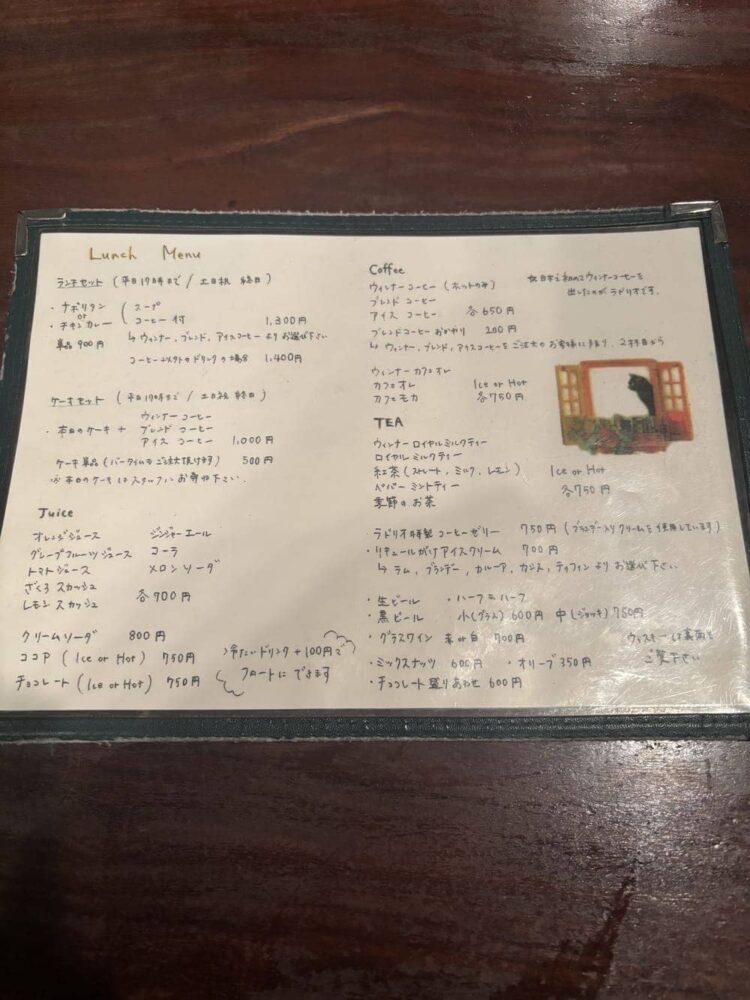 Lunch Menu
ランチセット (平日17時まで / 土日祝 終日)
・ナポリタン
or
・チキンカレー
スープ
コーヒー付 1,300円
単品 900円
↳ ウィンナー、ブレンド、アイスコーヒーよりお選び下さい
コーヒー以外のドリンクの場合 1,400円
ケーキセット (平日17時まで / 土日祝 終日)
・本日のケーキ +
ウィンナーコーヒー
ブレンドコーヒー
アイスコーヒー 1,000円
ケーキ単品 (バータイムもご注文頂けます) 500円
※本日のケーキはスタッフにお尋ね下さい。
Juice
オレンジジュース ジンジャーエール
グレープフルーツジュース コーラ
トマトジュース メロンソーダ
ざくろスカッシュ
レモンスカッシュ 各700円
クリームソーダ 800円
ココア (Ice or Hot) 750円
チョコレート (Ice or Hot) 750円
冷たいドリンク +100円で
フロートにできます
Coffee
ウィンナーコーヒー (ホットのみ)
ブレンドコーヒー
アイスコーヒー 各650円
ブレンドコーヒーおかわり 200円
↳ ウィンナー、ブレンド、アイスコーヒーをご注文のお客様に限り、2杯目から
☆日本で初めてウィンナーコーヒーを
出したのがラドリオです。
ウィンナーカフェオレ
カフェオレ Ice or Hot
カフェモカ 各750円
TEA
ウィンナーロイヤルミルクティー
ロイヤルミルクティー
紅茶 (ストレート、ミルク、レモン) Ice or Hot
ペパーミントティー 各750円
季節のお茶
ラドリオ特製コーヒーゼリー 750円 (ブランデー入りクリームを使用しています)
・リキュールがけアイスクリーム 700円
↳ ラム、ブランデー、カルーア、カシス、ティフィンよりお選び下さい
・生ビール ・ハーフ&ハーフ
・黒ビール 小(グラス) 600円 中(ジョッキ) 750円
・グラスワイン 赤or白 700円
ウィスキーは裏面を
ご覧下さい
・ミックスナッツ 600円 ・オリーブ 350円
・チョコレート盛りあわせ 600円